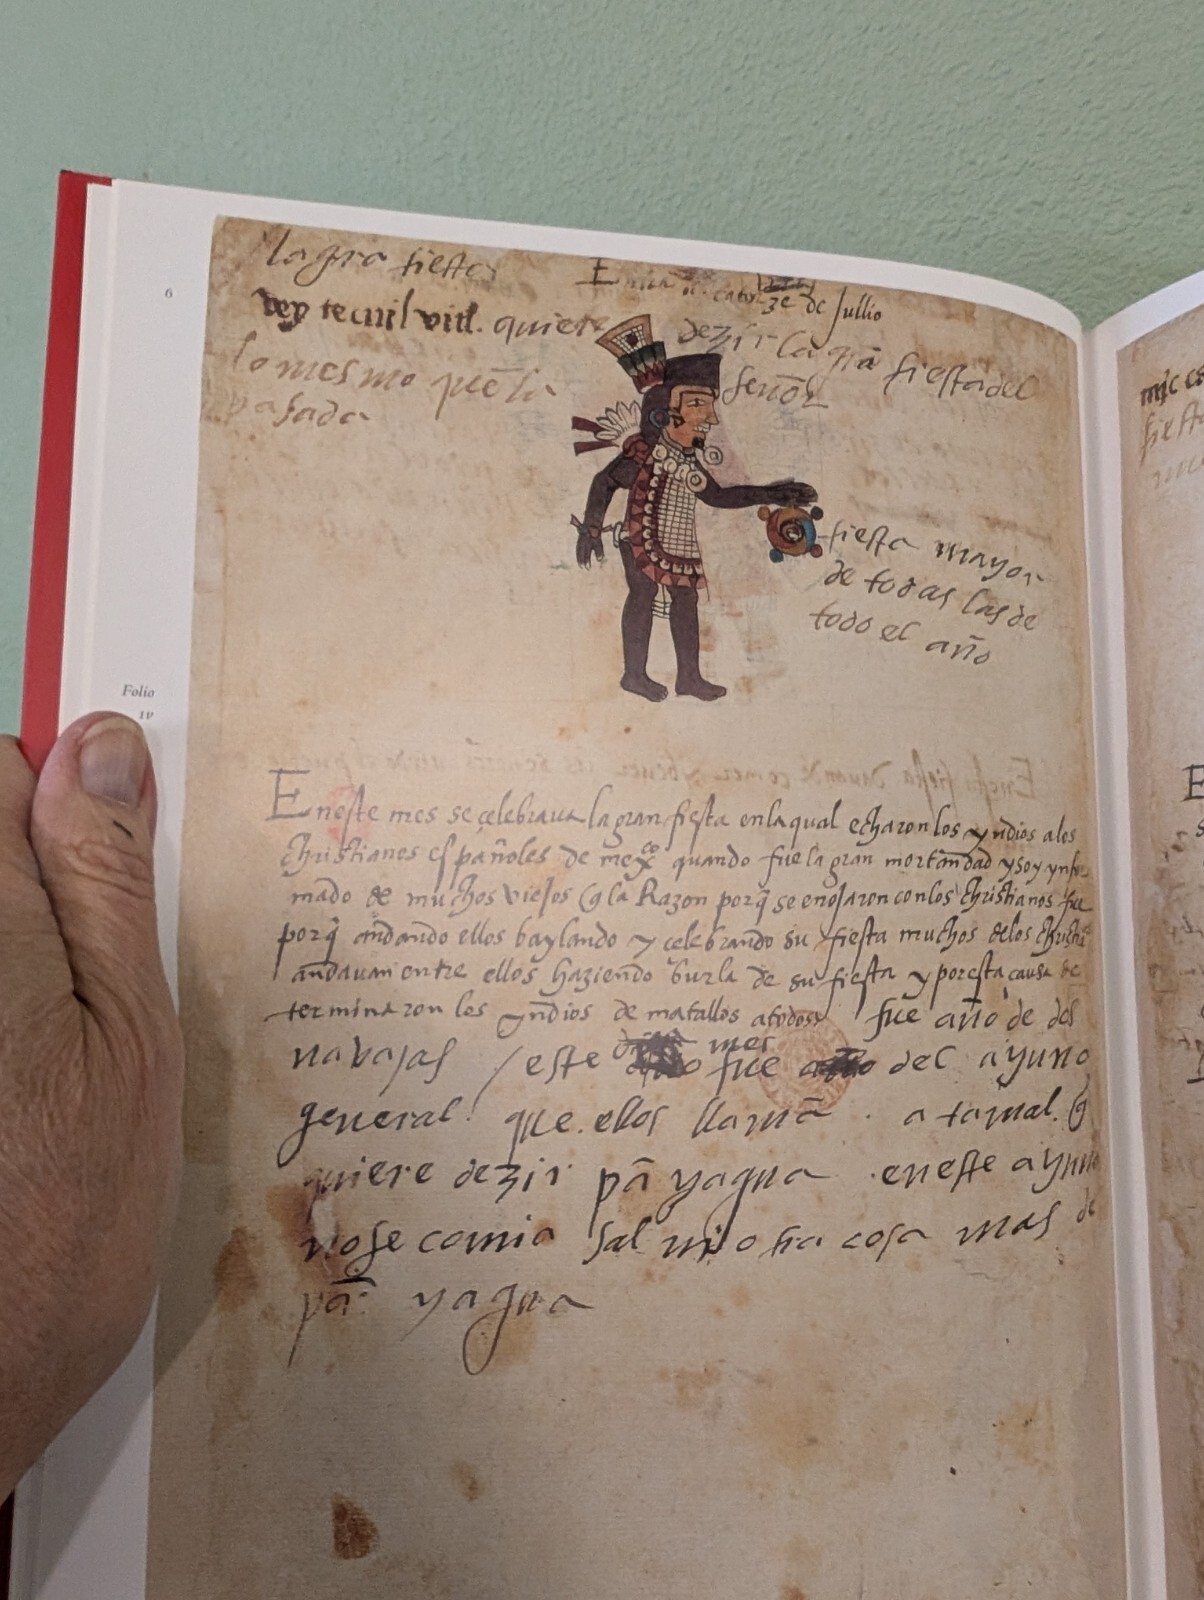 6
Folio
1v
la gra fiesta
Entra a catorze de Jullio
vey tecuil vitl. quiere dezir la grã fiesta del
señor
lo mesmo que la
pasada
fiesta mayor
de todas las de
todo el año
En este mes se çelebraua la gran fiesta en la qual echaron los yndios a los
christianos españoles de mexco quando fue la gran mortandad y soy ynfor
mado de muchos viejos q̃ la Razon porq̃ se enojaron con los christianos fue
porq̃ andando ellos baylando y çelebrando su fiesta muchos de los christia
andauan entre ellos haziendo burla de su fiesta y por esta causa de
terminaron los yndios de matallos a todos / fue año de dos
nabajas / este mes fue del ayuno
general. que ellos llamã. atamal. q̃
quiere dezir pã y agua. en este ayuno
no se comia sal ni otra cosa mas de
pã y agua
mic ca
fiesta
E